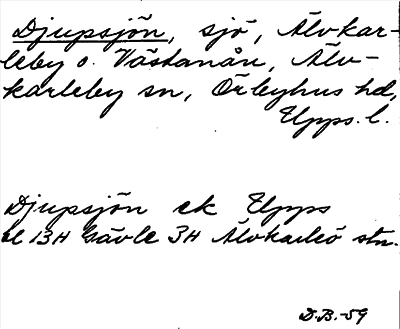 Djupsjön, sjö, Älvkar-
leby o. Västanån, Älv-
karleby sn, Örbyhus hd,
Upps. l.
Djupsjön ek Upps
l 13H Gävle 3H Älvkarleö stn.
D.B.-59